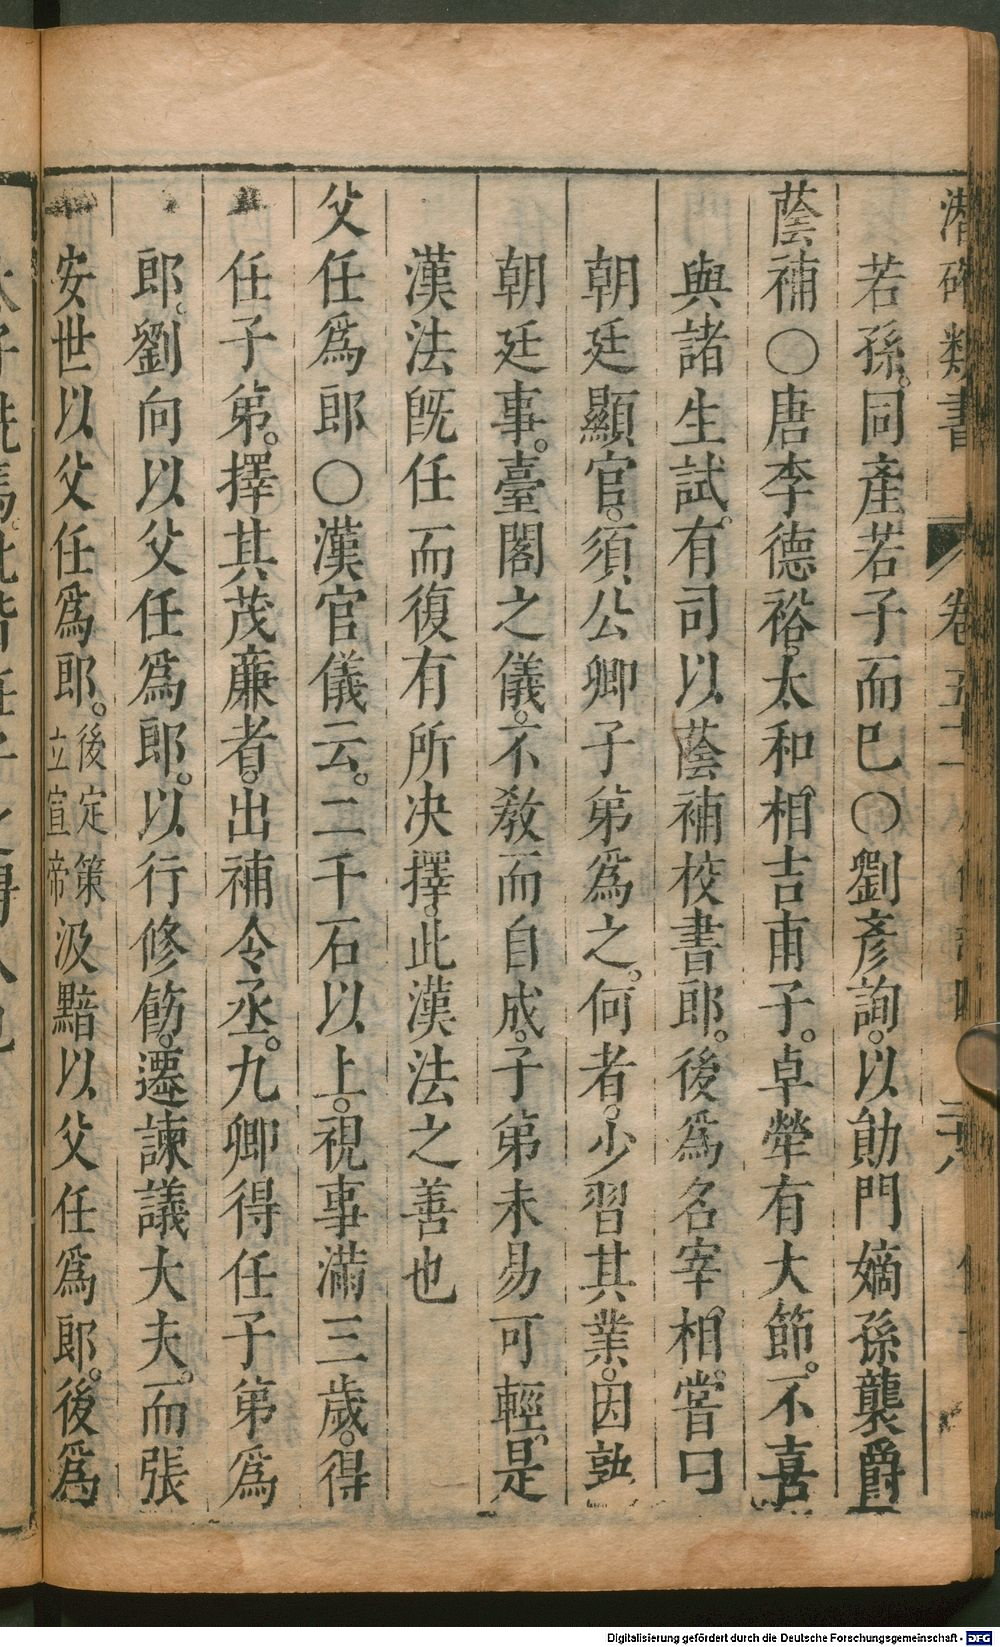 潛確類書 卷五十
若孫。同產若子而已〇劉彥詢。以勛門嫡孫襲爵
蔭補〇唐李德裕。太和相吉甫子。卓犖有大節。不喜
與諸生試。有司以蔭補校書郎。後爲名宰相。嘗曰
朝廷顯官。須公卿子第爲之。何者。少習其業。因熟
朝廷事。臺閣之儀。不教而自成。子第未易可輕。是
漢法既任而復有所决擇。此漢法之善也
父任爲郎〇漢官儀云。二千石以上。視事滿三歲。得
任子第。擇其茂廉者。出補令丞。九卿得任子第爲
郎。劉向以父任爲郎。以行修飭。遷諫議大夫。而張
安世以父任爲郎。後定策立宣帝汲黯以父任爲郎。後爲
Digitalisierung gefördert durch die Deutsche Forschungsgemeinschaft - DFG